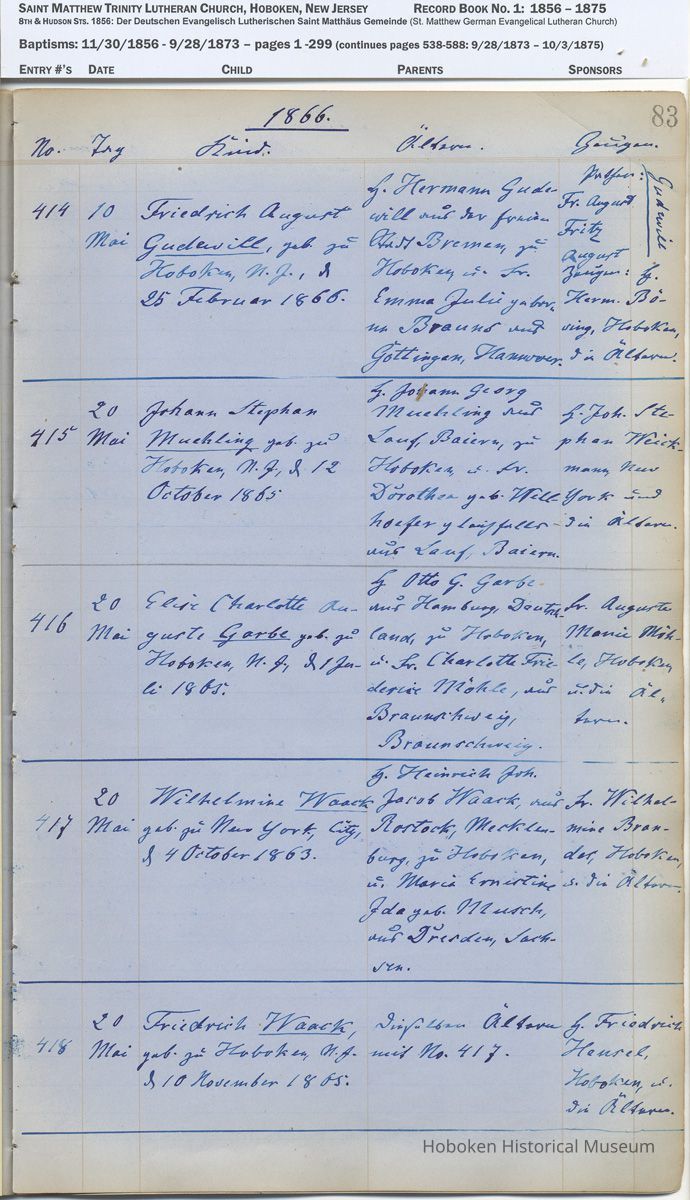 SAINT MATTHEW TRINITY LUTHERAN CHURCH, HOBOKEN, NEW JERSEY RECORD BOOK NO. 1: 1856 – 1875
8TH & HUDSON STS. 1856: Der Deutschen Evangelisch Lutherischen Saint Matthäus Gemeinde (St. Matthew German Evangelical Lutheran Church)
Baptisms: 11/30/1856 - 9/28/1873 – pages 1 -299 (continues pages 538-588: 9/28/1873 – 10/3/1875)
ENTRY #'S DATE CHILD PARENTS SPONSORS
1866. 83
No. Tag Kind. Ältern. Zeugen.
414
10
Mai
Friedrich August
Gudewill, geb. zu
Hoboken, N. J., d
25 Februar 1866.
H. Hermann Gude-
will aus der freien
Stadt Bremen, zu
Hoboken, u. Fr.
Emma Julie gebor-
nn Brauns aus
Göttingen, Hannover.
Pathen:
Fr. August
Fritz
August
Gudewill
Zeugen: H.
Herm. Bö-
ving, Hoboken,
die Ältern.
415
20
Mai
Johann Stephan
Muehling geb. zu
Hoboken, N. J., d 12
October 1865
H. Johann Georg
Muehling aus
Lauf, Baiern, zu
Hoboken, u. Fr.
Dorothea geb. Well-
hoefer gleichfalls
aus Lauf, Baiern.
H. Joh. Ste-
phan Weitz-
mann, New
York und
die Ältern.
416
20
Mai
Elise Charlotte Au-
guste Garbe geb. zu
Hoboken, N. J., d 1 Ju-
li 1865.
H. Otto G. Garbe
aus Hamburg, Deutsch-
land, zu Hoboken,
u. Fr. Charlotte Frie-
derise Möhle, aus
Braunschweig,
Braunschweig.
Fr. Auguste
Marie Möh-
le, Hoboken
u. die Äl-
tern.
417
20
Mai
Wilhelmine Waack
geb. zu New York, City,
d 4 October 1863.
H. Heinrich Joh.
Jacob Waack, aus
Rostock, Mecklen-
burg, zu Hoboken,
u. Maria Ernestine
Ida geb. Musch,
aus Dresden, Sach-
sen.
Fr. Wilhel-
mine Bran-
des, Hoboken,
u. die Ältern.
418
20
Mai
Friedrich Waack,
geb. zu Hoboken, N. J.
d 10 November 1865.
Dieselben Ältern
mit No. 417.
H. Friedrich
Hensel,
Hoboken, u.
die Ältern.
Hoboken Historical Museum